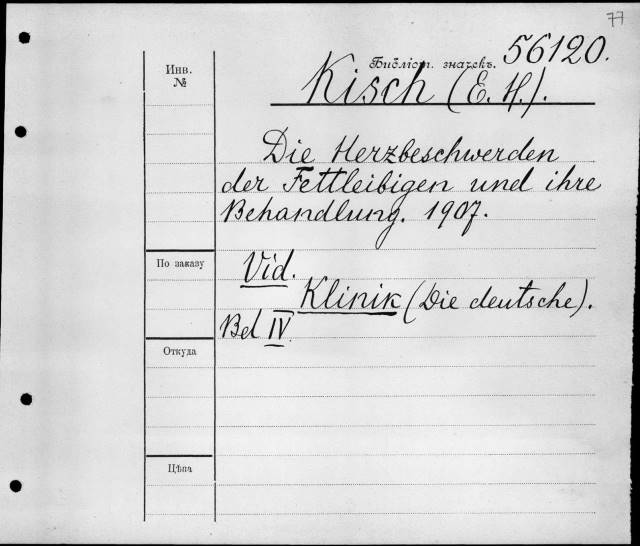 77
Библіот. значекъ. 56120.
Инв.
№
Kisch (E. H.).
Die Herzbeschwerden
der Fettleibigen und ihre
Behandlung. 1907.
По заказу
Vid.
Klinik (Die deutsche).
Bd IV.
Откуда
Цѣна